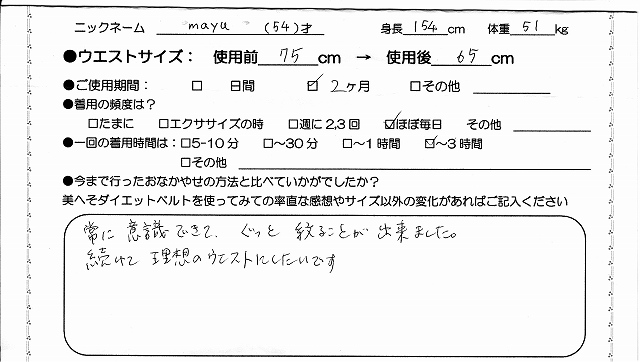 ニックネーム mayu (54)才 身長 154 cm 体重 51 kg
●ウエストサイズ： 使用前 75 cm → 使用後 65 cm
●ご使用期間： □ 日間 ☑ 2ヶ月 □その他
●着用の頻度は？
□たまに □エクササイズの時 □週に2,3回 ☑ほぼ毎日 その他
●一回の着用時間は：□5-10分 □～30分 □～1時間 ☑～3時間
□その他
●今まで行ったおなかやせの方法と比べていかがでしたか？
美へそダイエットベルトを使ってみての率直な感想やサイズ以外の変化があればご記入ください
常に意識できて、ぐっと絞ることが出来ました。
続けて理想のウエストにしたいです